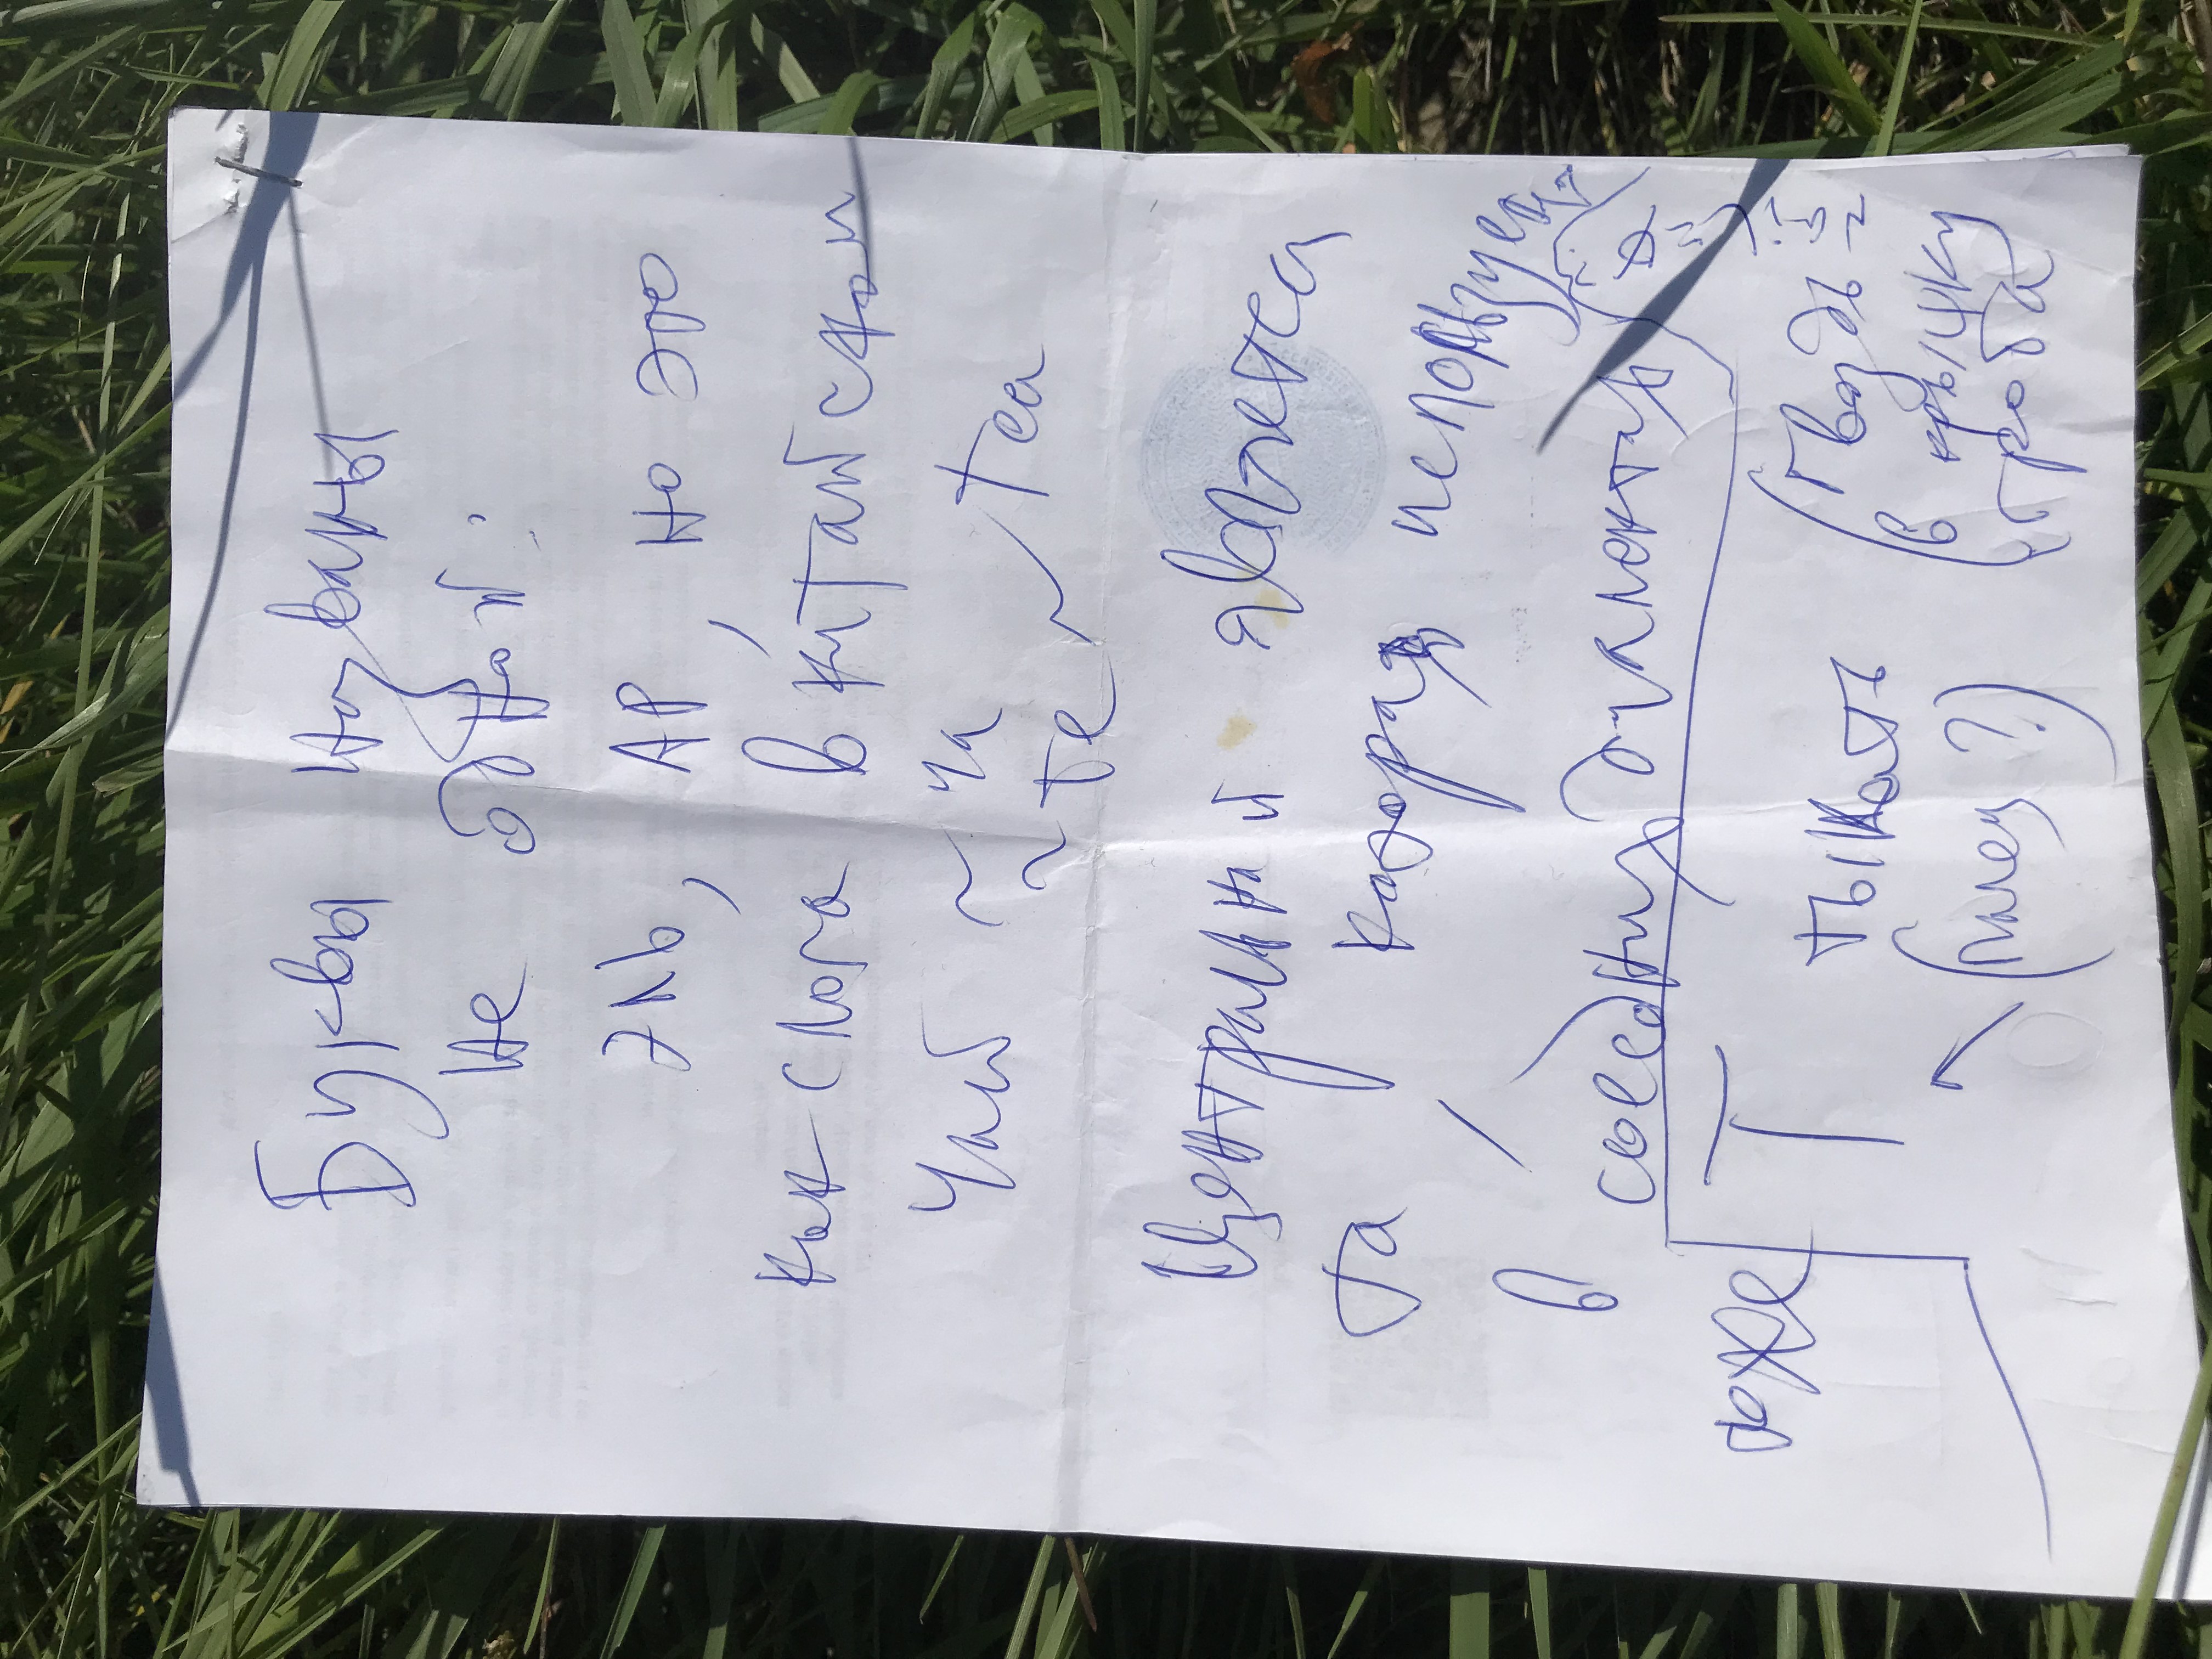 Буквы названы
не одной:
ЭЛЬ, АР, но это
как слога в китайском
Чай ~ ча
~ те ~ tea
Центральной является
та которая используется
в соседних диалектах
тоже
Т тыкать
(палец?)
(гвоздь
в крышку
гроба